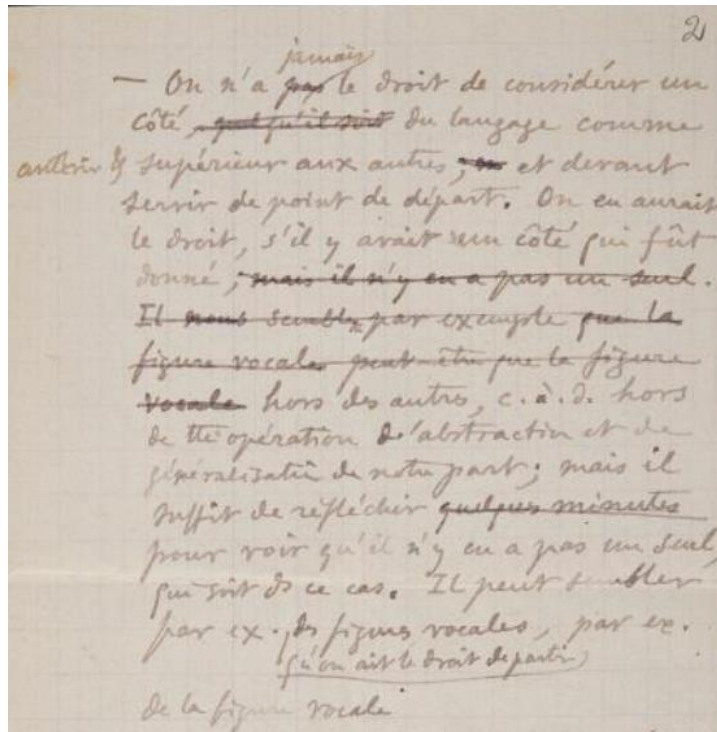 2
jamais
— On n'a pas le droit de considérer un
côté, quel qu'il soit du langage comme
antérieur & supérieur aux autres, et devant
servir de point de départ. On en aurait
le droit, s'il y avait un côté qui fût
donné, mais il n'y en a pas un seul.
Il nous semble par exemple que la
figure vocale peut-être que la figure
vocale hors des autres, c. à. d. hors
de tte opération d'abstraction et de
généralisation de notre part; mais il
suffit de réfléchir quelques minutes
pour voir qu'il n'y en a pas un seul,
qui soit ds ce cas. Il peut sembler
par ex. des figures vocales, par ex.
qu'on ait le droit de partir
de la figure vocale